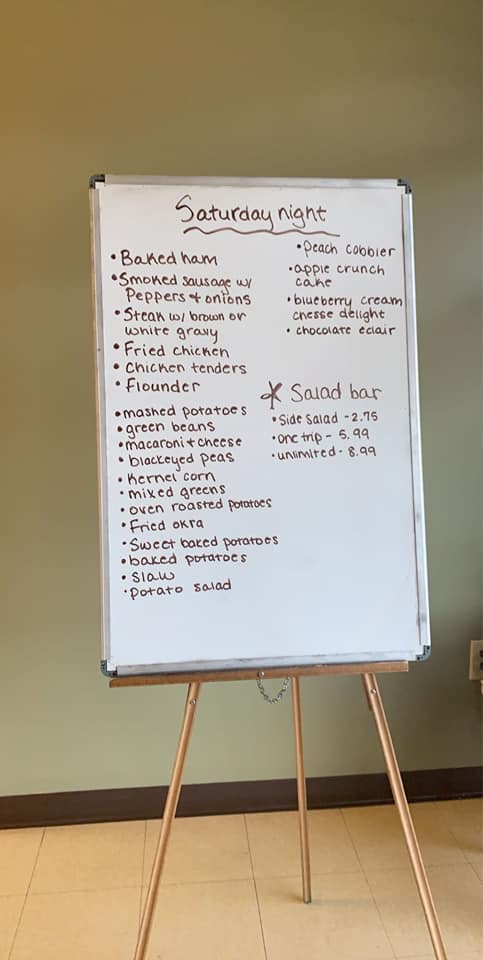 Saturday night
• Baked ham
• Smoked sausage w/
Peppers + onions
• Steak w/ brown or
white gravy
• Fried chicken
• chicken tenders
• Flounder
• mashed potatoes
• green beans
• macaroni + cheese
• blackeyed peas
• Kernel corn
• mixed greens
• oven roasted potatoes
• Fried okra
• Sweet baked potatoes
• baked potatoes
• Slaw
• potato salad
• peach cobbler
• apple crunch
cake
• blueberry cream
cheese delight
• chocolate eclair
* Salad bar
• Side salad - 2.75
• one trip - 5.99
• unlimited - 8.99